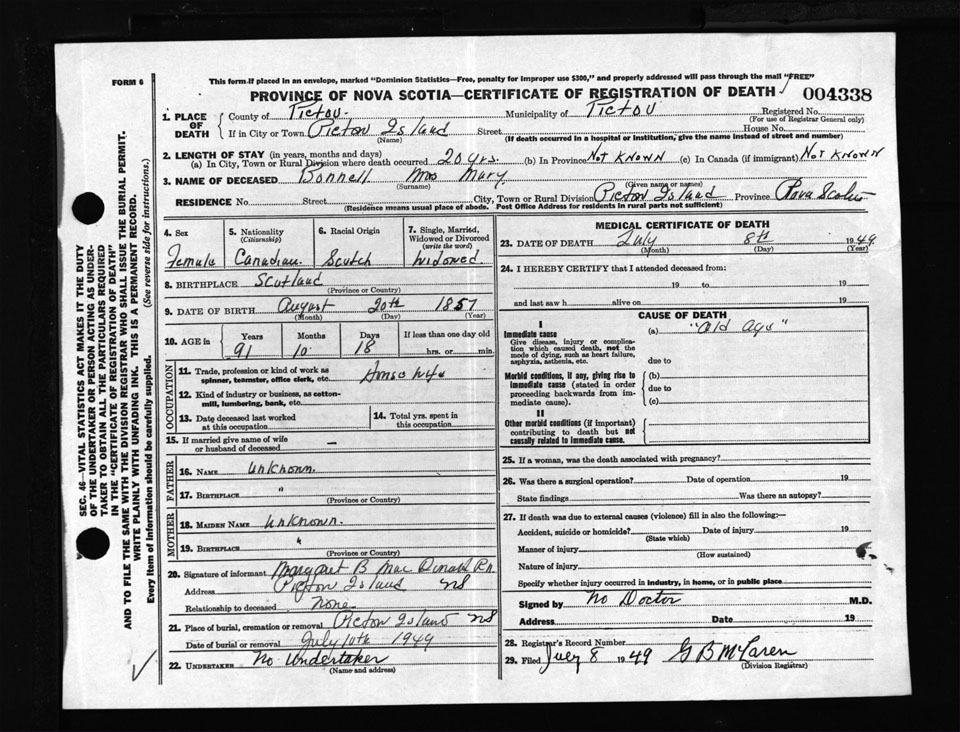 FORM 6
This form if placed in an envelope, marked "Dominion Statistics—Free, penalty for improper use $300," and properly addressed will pass through the mail "FREE"
PROVINCE OF NOVA SCOTIA—CERTIFICATE OF REGISTRATION OF DEATH 004338
1. PLACE OF DEATH County of Pictou. Municipality of Pictou Registered No.
(For use of Registrar General only)
If in City or Town Pictou Island Street House No.
(Name) (If death occurred in a hospital or institution, give the name instead of street and number)
2. LENGTH OF STAY (in years, months and days)
(a) In City, Town or Rural Division where death occurred 20 yrs. (b) In Province Not Known (c) In Canada (if immigrant) Not Known
3. NAME OF DECEASED Bonnell Mrs Mary
(Surname) (Given name or names)
RESIDENCE No. Street City, Town or Rural Division Pictou Island Province Nova Scotia
(Residence means usual place of abode. Post Office Address for residents in rural parts not sufficient)
4. Sex Female
5. Nationality (Citizenship) Canadian
6. Racial Origin Scotch
7. Single, Married, Widowed or Divorced (write the word) Widowed
8. BIRTHPLACE Scotland
(Province or Country)
9. DATE OF BIRTH August 20th 1857
(Month) (Day) (Year)
10. AGE in Years Months Days If less than one day old
91 10 18 hrs. or min.
OCCUPATION
11. Trade, profession or kind of work as spinner, teamster, office clerk, etc. House wife
12. Kind of industry or business, as cotton-mill, lumbering, bank, etc.
13. Date deceased last worked at this occupation
14. Total yrs. spent in this occupation
15. If married give name of wife or husband of deceased —
FATHER
16. NAME Unknown.
17. BIRTHPLACE "
(Province or Country)
MOTHER
18. MAIDEN NAME Unknown.
19. BIRTHPLACE "
(Province or Country)
20. Signature of informant Margaret B MacDonald R.n.
Address Pictou Island NS
Relationship to deceased None
21. Place of burial, cremation or removal Pictou Island NS
Date of burial or removal July 10th 1949
22. UNDERTAKER No Undertaker
(Name and address)
MEDICAL CERTIFICATE OF DEATH
23. DATE OF DEATH July 8th 1949
(Month) (Day) (Year)
24. I HEREBY CERTIFY that I attended deceased from:
19 to 19
and last saw h alive on 19
CAUSE OF DEATH
I
Immediate cause (a) "Old Age"
Give disease, injury or complication which caused death, not the mode of dying, such as heart failure, asphyxia, asthenia, etc.
due to
Morbid conditions, if any, giving rise to immediate cause (stated in order proceeding backwards from immediate cause).
(b)
due to
(c)
II
Other morbid conditions (if important) contributing to death but not causally related to immediate cause.
25. If a woman, was the death associated with pregnancy?
26. Was there a surgical operation? Date of operation 19
State findings Was there an autopsy?
27. If death was due to external causes (violence) fill in also the following:—
Accident, suicide or homicide? Date of injury 19
(State which)
Manner of injury
(How sustained)
Nature of injury
Specify whether injury occurred in industry, in home, or in public place
Signed by No Doctor M.D.
Address Date 19
28. Registrar's Record Number
29. Filed July 8 1949 G B McLaren
(Division Registrar)
SEC. 46—VITAL STATISTICS ACT MAKES IT THE DUTY
OF THE UNDERTAKER OR PERSON ACTING AS UNDER-
TAKER TO OBTAIN ALL THE PARTICULARS REQUIRED
IN THE "CERTIFICATE OF REGISTRATION OF DEATH"
AND TO FILE THE SAME WITH THE DIVISION REGISTRAR WHO SHALL ISSUE THE BURIAL PERMIT.
WRITE PLAINLY WITH UNFADING INK. THIS IS A PERMANENT RECORD.
Every item of Information should be carefully supplied. (See reverse side for instructions.)